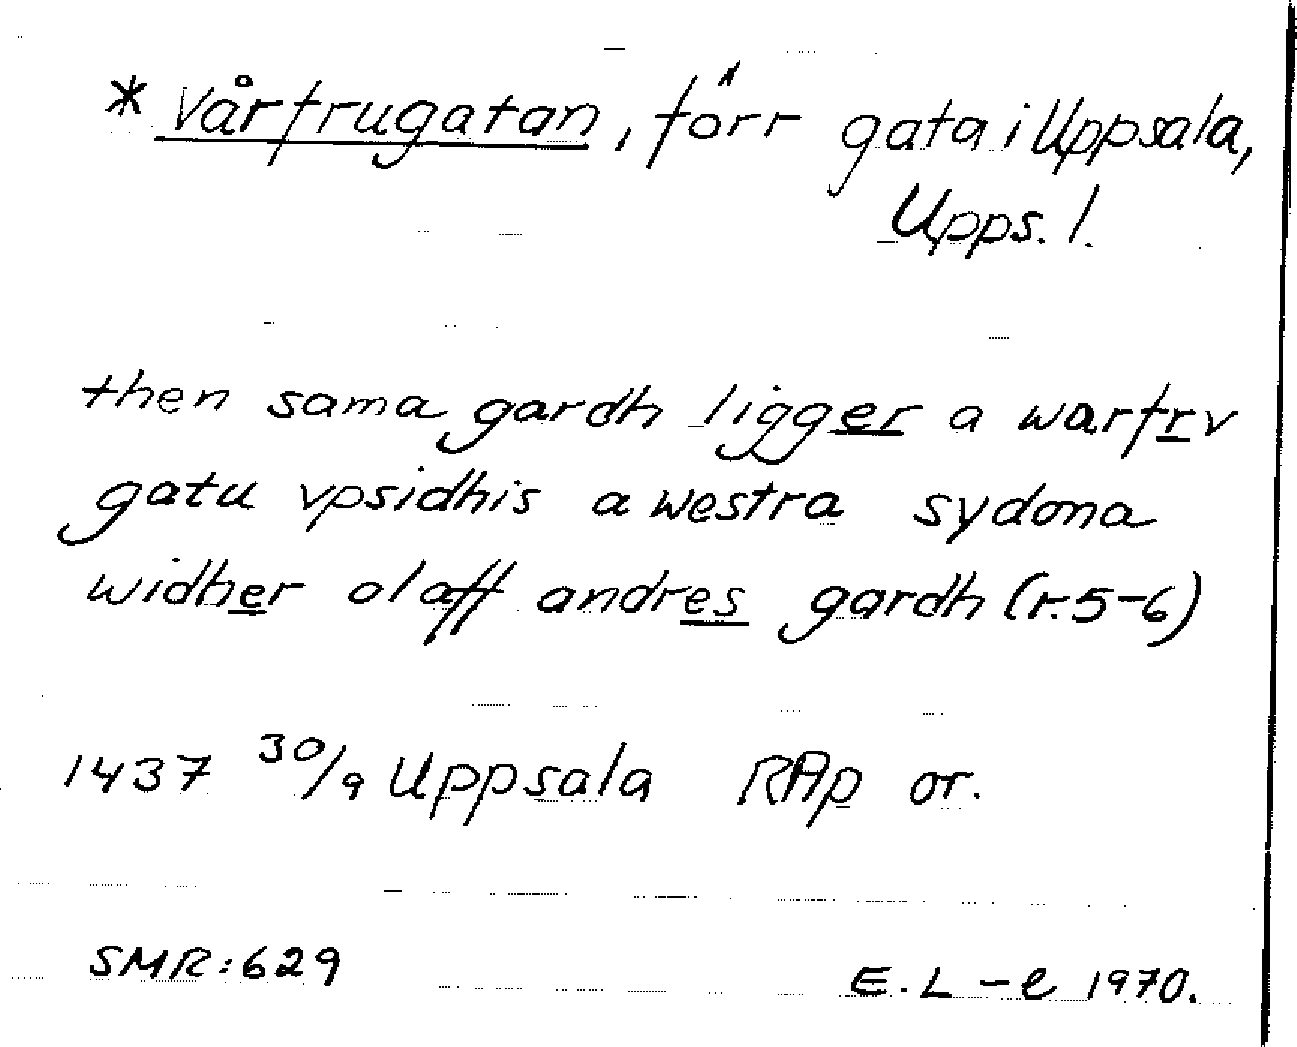 * Vårfrugatan, förr gata i Uppsala,
Upps. l.
then sama gardh ligger a warfrv
gatu vpsidhis a westra sydona
widher olaff andres gardh (r. 5-6)
1437 30/9 Uppsala RAp or.
SMR: 629
E. L-e 1970.